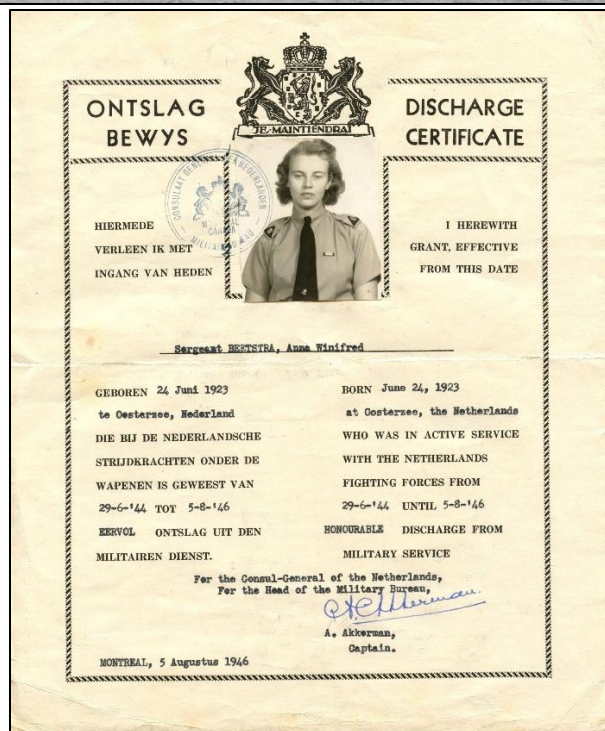 JE·MAINTIENDRAI
ONTSLAG
BEWYS
DISCHARGE
CERTIFICATE
CONSULAAT GENERAAL NEDERLANDEN
CANADA
MILITAIR BUREAU
HIERMEDE
VERLEEN IK MET
INGANG VAN HEDEN
I HEREWITH
GRANT, EFFECTIVE
FROM THIS DATE
Sergeant BEETSTRA, Anna Winifred
GEBOREN 24 Juni 1923
te Oesterzee, Nederland
DIE BIJ DE NEDERLANDSCHE
STRIJDKRACHTEN ONDER DE
WAPENEN IS GEWEEST VAN
29-6-'44 TOT 5-8-'46
EERVOL ONTSLAG UIT DEN
MILITAIREN DIENST.
BORN June 24, 1923
at Oosterzee, the Netherlands
WHO WAS IN ACTIVE SERVICE
WITH THE NETHERLANDS
FIGHTING FORCES FROM
29-6-'44 UNTIL 5-8-'46
HONOURABLE DISCHARGE FROM
MILITARY SERVICE
For the Consul-General of the Netherlands,
For the Head of the Military Bureau,
A. Akkerman,
Captain.
MONTREAL, 5 Augustus 1946